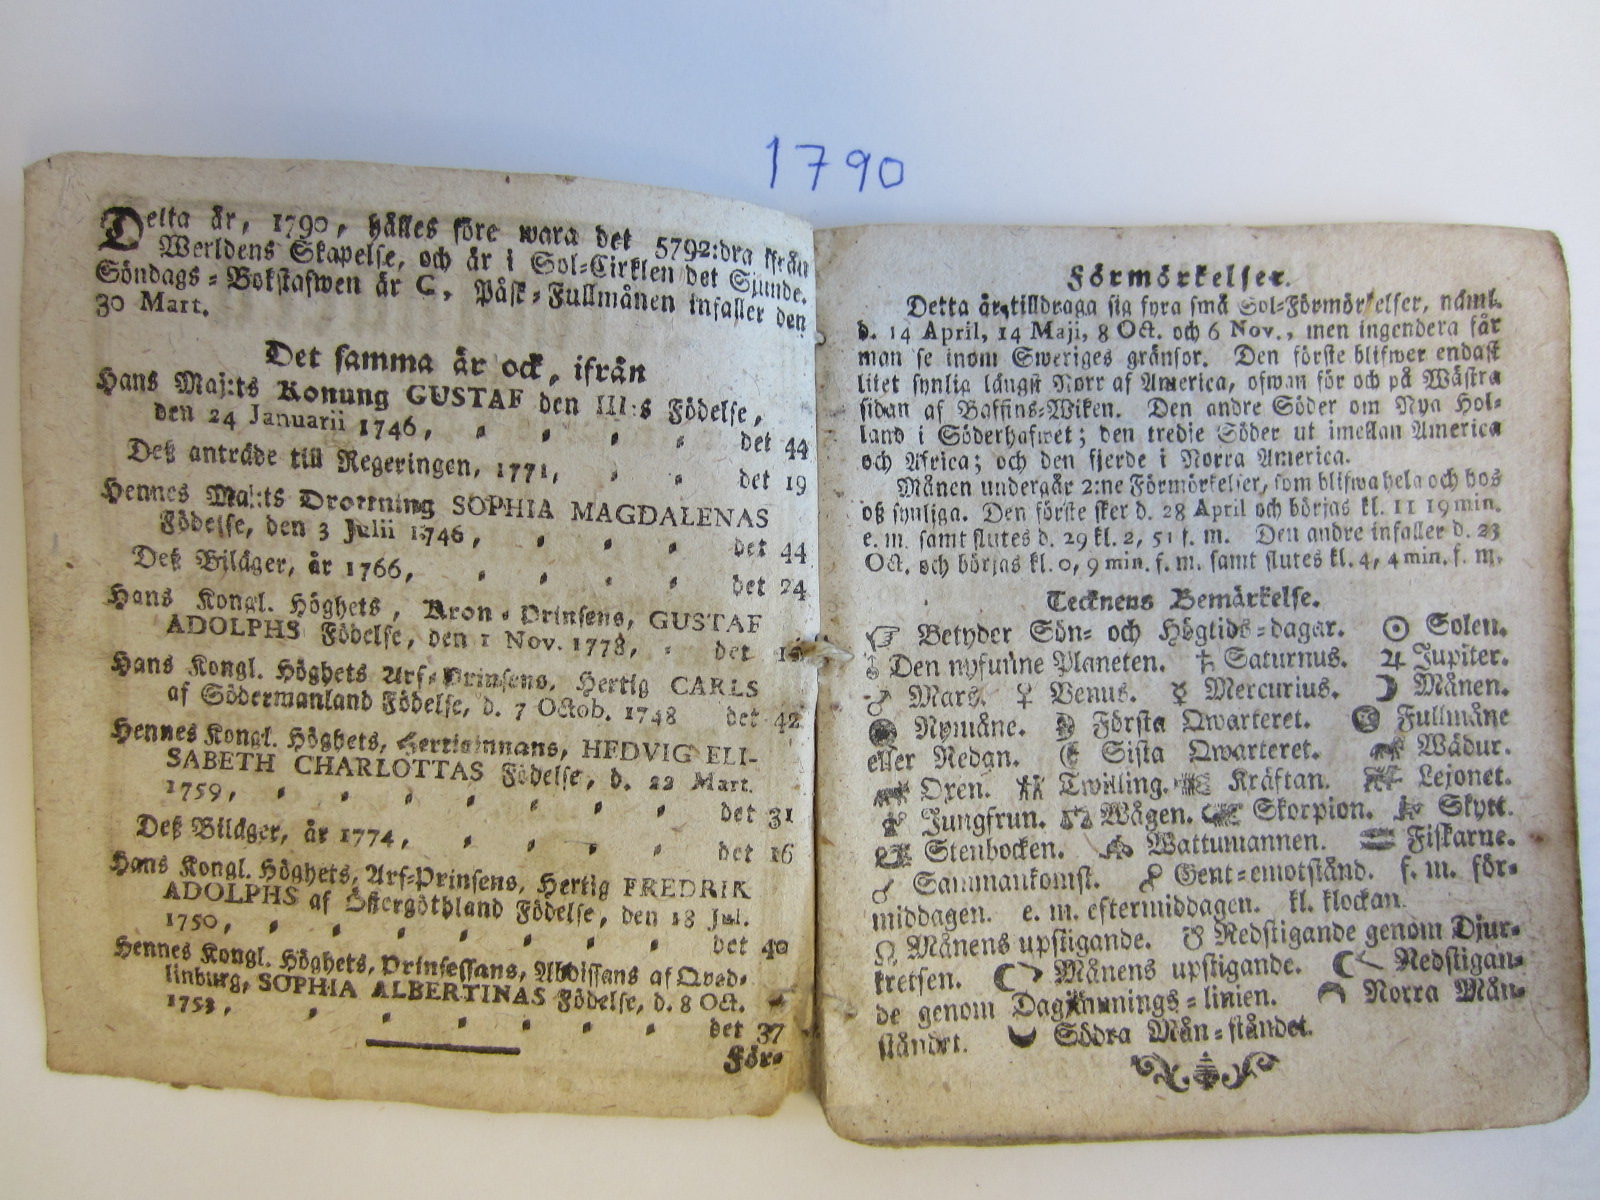 1790
Detta år, 1790, hålles före wara det 5792:dra ifrån
Werldens Skapelse, och är i Sol=Cirklen det Sjunde.
Söndags=Bokstafwen är C. Påsk=Fullmånen infaller den
30 Mart.
Det samma år ock, ifrån
Hans Maj:ts Konung GUSTAF den III:s Födelse,
den 24 Januarii 1746, det 44
Deß anträde till Regeringen, 1771, det 19
Hennes Maj:ts Drottning SOPHIA MAGDALENAS
Födelse, den 3 Julii 1746, det 44
Deß Biläger, år 1766, det 24
Hans Kongl. Höghets, Kron=Prinsens, GUSTAF
ADOLPHS Födelse, den 1 Nov. 1778, det
Hans Kongl. Höghets Arf=Prinsens, Hertig CARLS
af Södermanland Födelse, d. 7 Octob. 1748 det 42
Hennes Kongl. Höghets, Hertiginnans, HEDVIG ELI-
SABETH CHARLOTTAS Födelse, d. 22 Mart.
1759, det 31
Deß Biläger, år 1774, det 16
Hans Kongl. Höghets, Arf=Prinsens, Hertig FREDRIK
ADOLPHS af Östergöthland Födelse, den 18 Jul.
1750, det 40
Hennes Kongl. Höghets, Prinsessans, Abbissans af Qved=
linburg, SOPHIA ALBERTINAS Födelse, d. 8 Oct.
1753, det 37
För=
Förmörkelser.
Detta år tilldraga sig fyra små Sol=Förmörkelser, näml.
d. 14 April, 14 Maji, 8 Oct. och 6 Nov., men ingendera får
man se inom Sweriges gränsor. Den förste blifwer endast
litet synlig längst Norr af America, ofwan för och på Wästra
sidan af Baffins=Wiken. Den andre Söder om Nya Hol=
land i Söderhafwet; den tredje Söder ut imellan America
och Africa; och den fjerde i Norra America.
Månen undergår 2:ne Förmörkelser, som blifwa hela och hos
oß synliga. Den förste sker d. 28 April och börjas kl. 11 19 min.
e. m. samt slutes d. 29 kl. 2, 51 f. m. Den andre infaller d. 23
Oct. och börjas kl. 0, 9 min. f. m. samt slutes kl. 4, 4 min. f. m.
Tecknens Bemärkelse.
☞ Betyder Sön= och Högtids=dagar. ☉ Solen.
Den nyfunne Planeten. ♄ Saturnus. ♃ Jupiter.
♂ Mars. ♀ Venus. ☿ Mercurius. ☽ Månen.
Nymåne. Första Qwarteret. Fullmåne
eller Nedan. Sista Qwarteret. Wädur.
Oxen. Twilling. Kräftan. Lejonet.
Jungfrun. Wågen. Skorpion. Skytt.
Stenbocken. Wattumannen. Fiskarne.
☌ Sammankomst. ☍ Gent=emotstånd. f. m. för=
middagen. e. m. eftermiddagen. kl. klockan.
☊ Månens upstigande. ☋ Nedstigande genom Djur=
kretsen. Månens upstigande. Nedstigan=
de genom Dagjämnings=linien. Norra Mån=
ståndet. Södra Mån=ståndet.